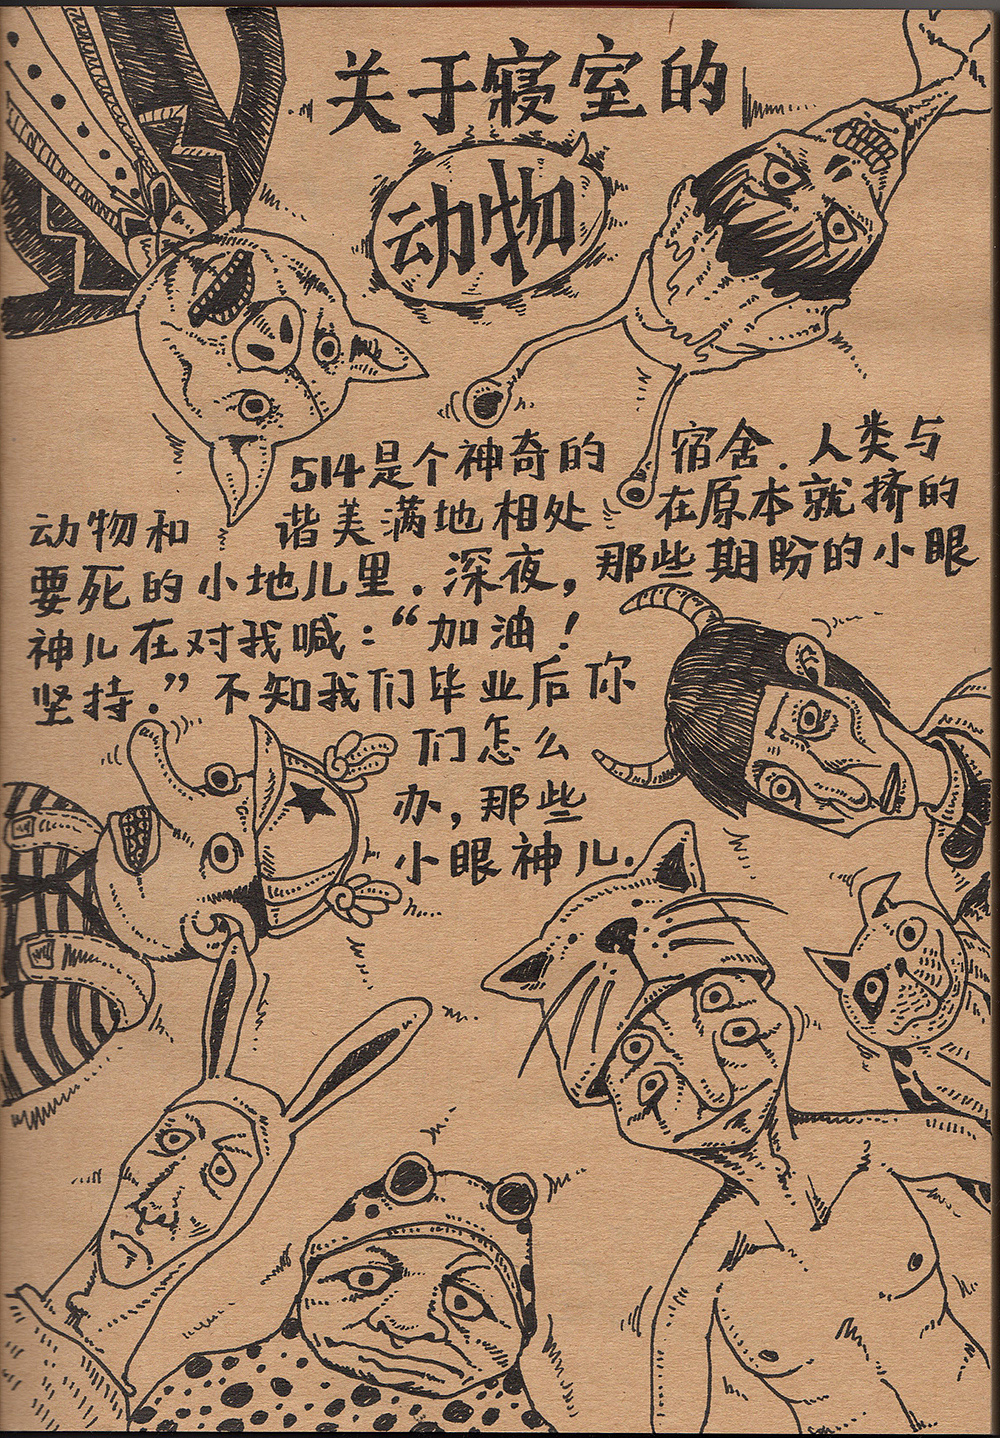 关于寝室的
动物
514是个神奇的宿舍.人类与
动物和谐美满地相处在原本就挤的
要死的小地儿里.深夜,那些期盼的小眼
神儿在对我喊:“加油!
坚持.”不知我们毕业后你
们怎么
办,那些
小眼神儿.